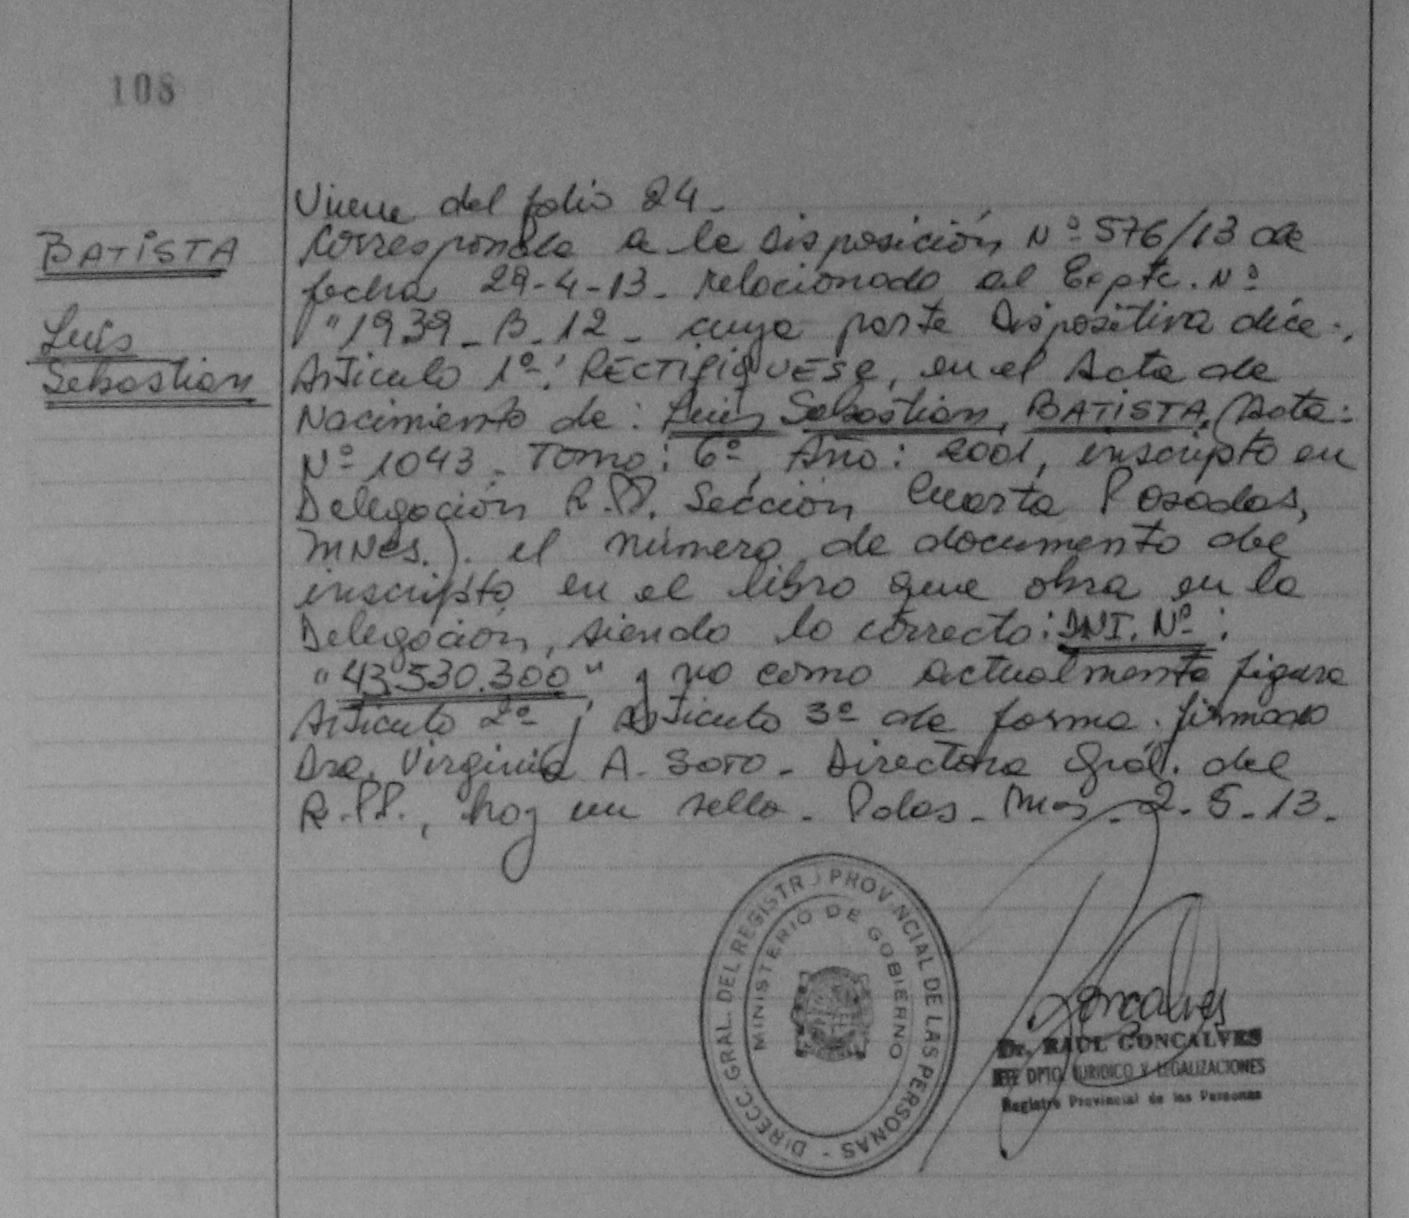 108
Viene del folio 24.
BATISTA
Luis
Sebastian
Corresponde a la disposición Nº 576/13 de
fecha 29-4-13. relacionado al Expte. Nº
"1939-B-12- cuya parte Dispositiva dice:.
Articulo 1º: RECTIFIQUESE, en el Acta de
Nacimiento de: Luis Sebastian, BATISTA, (Acta:
Nº 1043. Tomo: 6º, Año: 2001, inscripto en
Delegación R.PP. Sección Cuarta Posadas,
MNes.). el número de documento del
inscripto en el libro que obra en la
Delegación, siendo lo correcto: DNI. Nº:
"43.530.300" y no como actualmente figura
Articulo 2º y Articulo 3º de forma. firmado
Dra. Virginia A. Soto. Directora Gral. del
R.PP., hay un sello. Pdas. Mnes. 2.5.13.
DIRECC. GRAL. DEL REGISTRO PROVINCIAL DE LAS PERSONAS -
MINISTERIO DE GOBIERNO
Goncalves
Dr. RAUL GONCALVES
JEFE DPTO. JURIDICO Y LEGALIZACIONES
Registro Provincial de las Personas